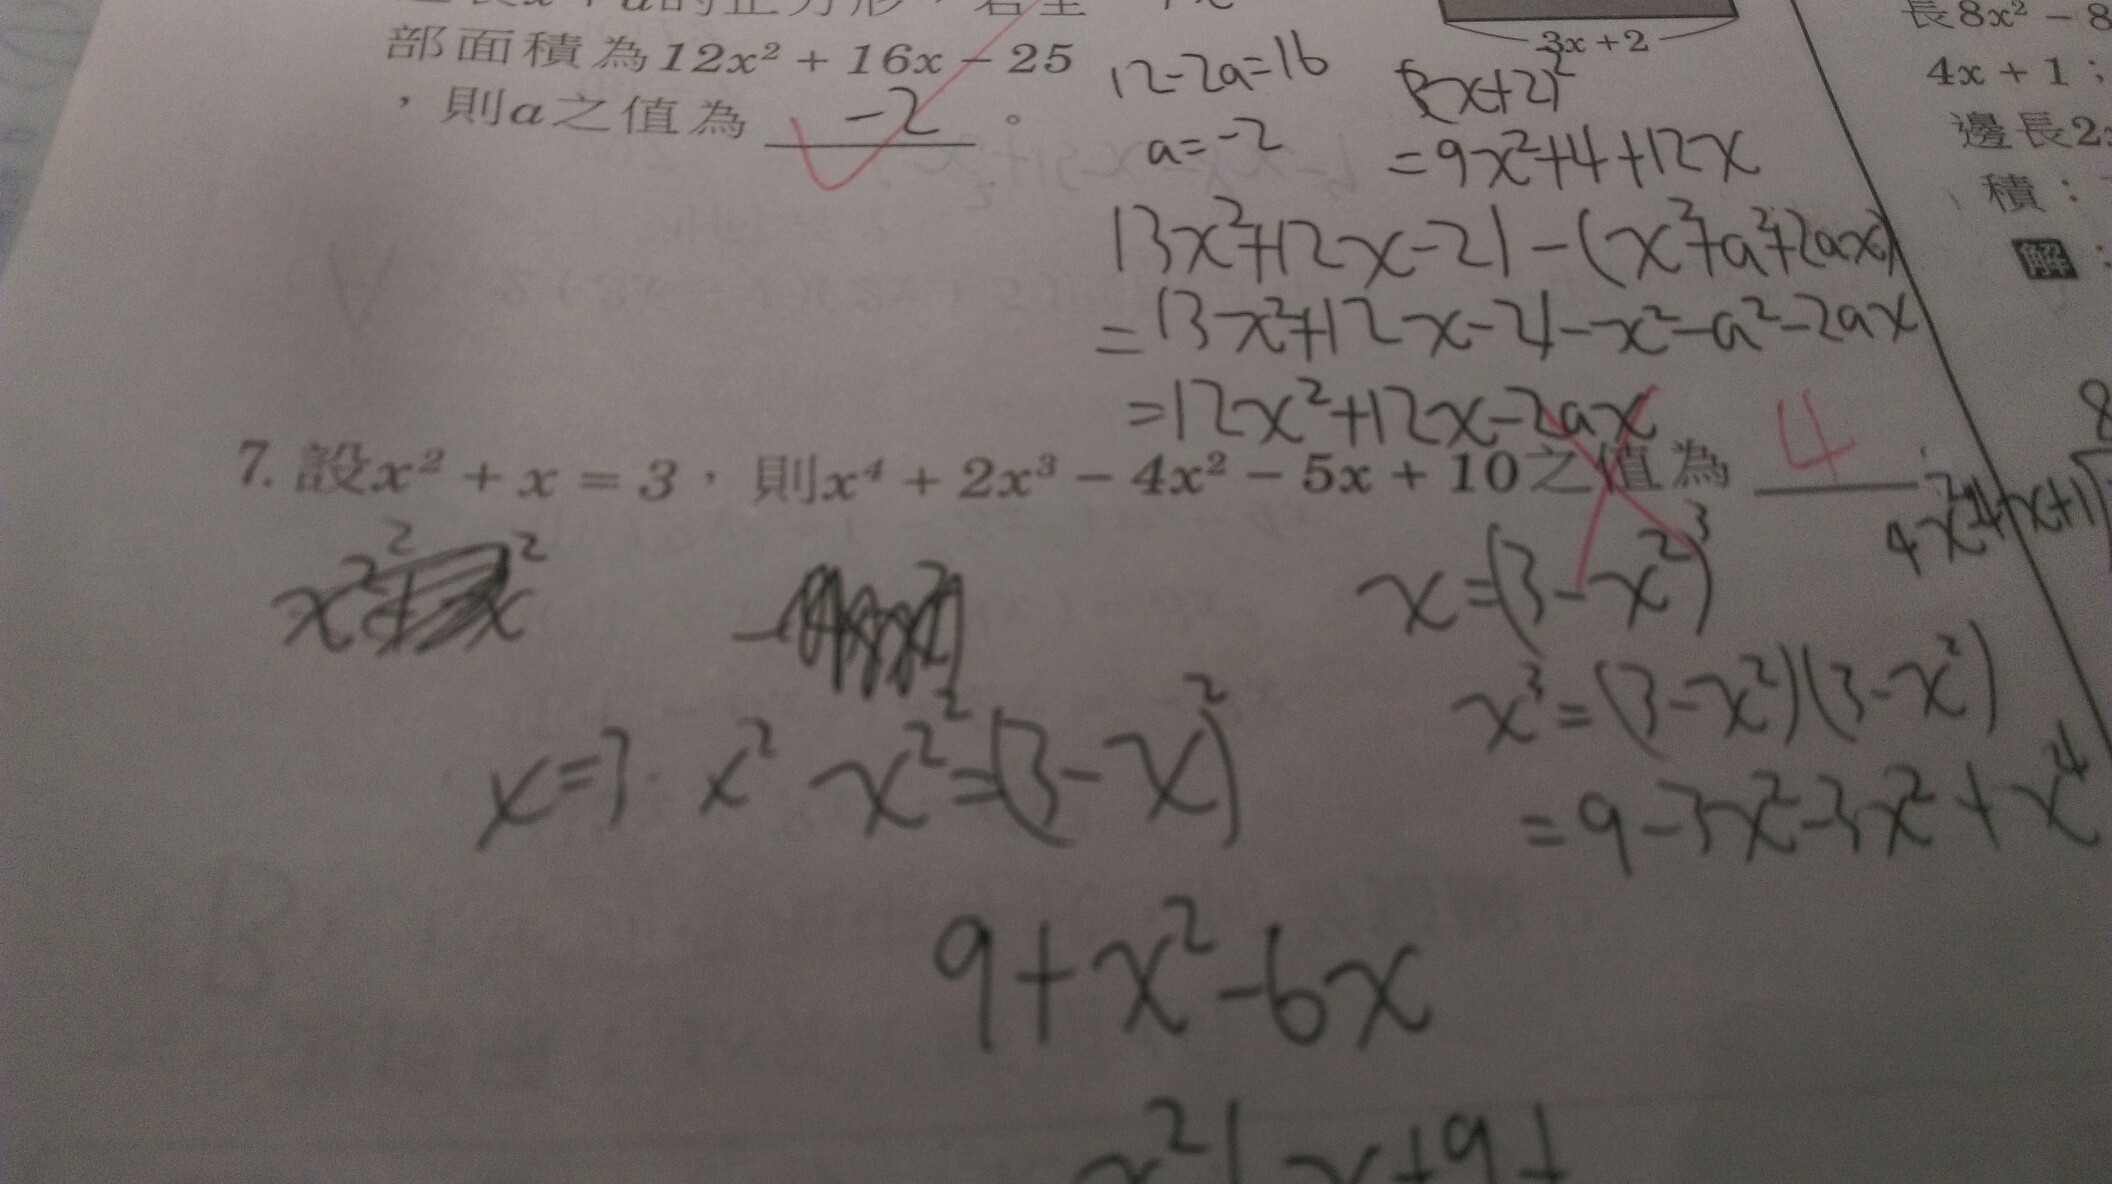 部面積為12x² + 16x - 25
，則a之值為 -2 。
3x + 2
12-2a=16
a=-2
(3x+2)²
=9x²+4+12x
13x²+12x-21-(x²+a²+2ax)
=13x²+12x-21-x²-a²-2ax
=12x²+12x-2ax
7. 設x² + x = 3，則x⁴ + 2x³ - 4x² - 5x + 10之值為 4
x=(3-x²)³
x³=(3-x²)(3-x²)
=9-3x²-3x²+x⁴
x=3-x²
x²=(3-x)²
9+x²-6x
長8x² - 8
4x + 1；
邊長2
積：
解：